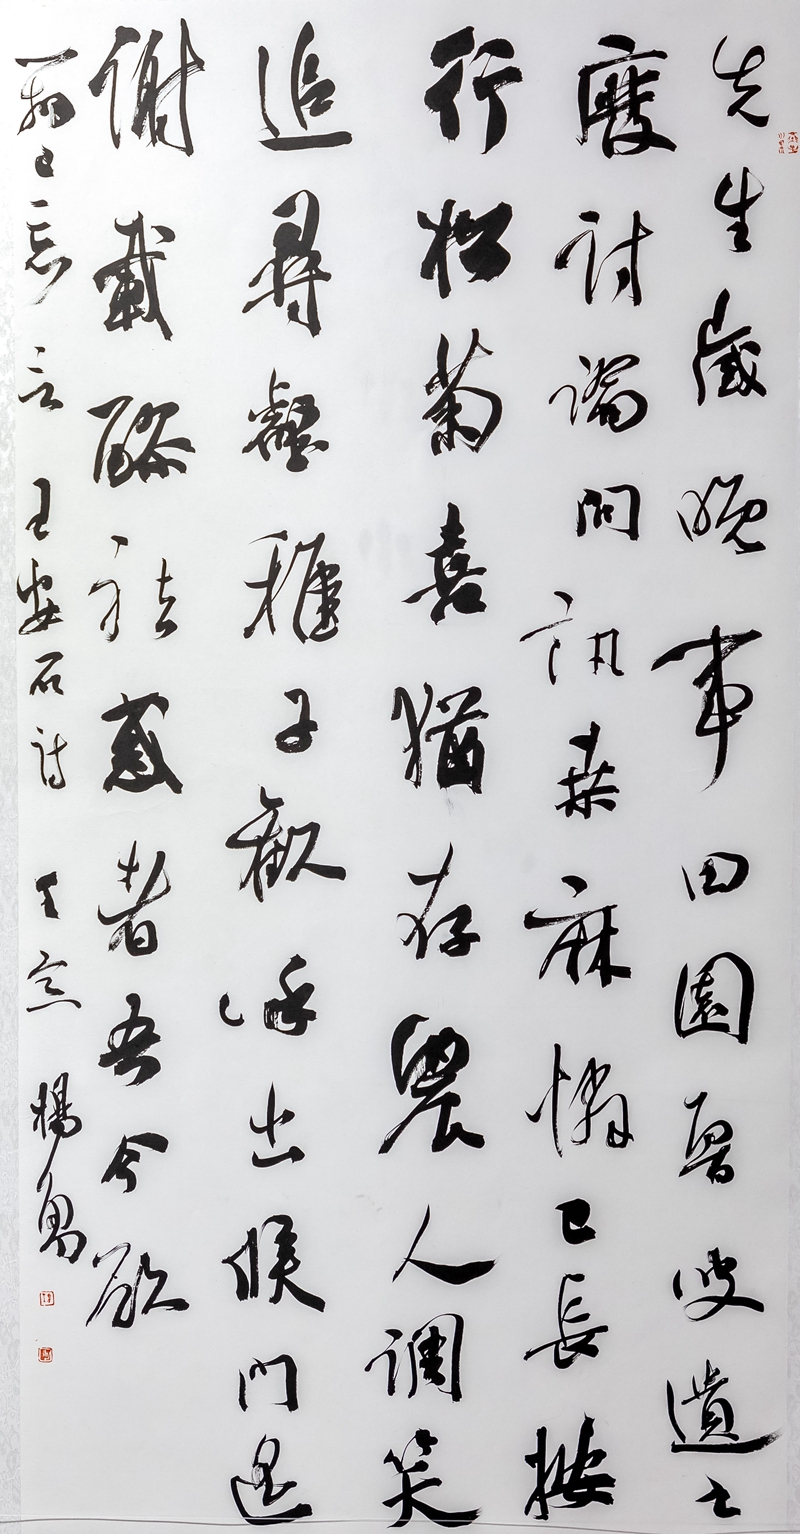 先生歲晚事田園魯叟遺书
廢討論問訊桑麻憐已長按
行松菊喜猶存農人調笑
追尋壑稚子歡呼出候門遥
謝載醪祛惑者吾今欲
辯已忘言 王安石詩 楊